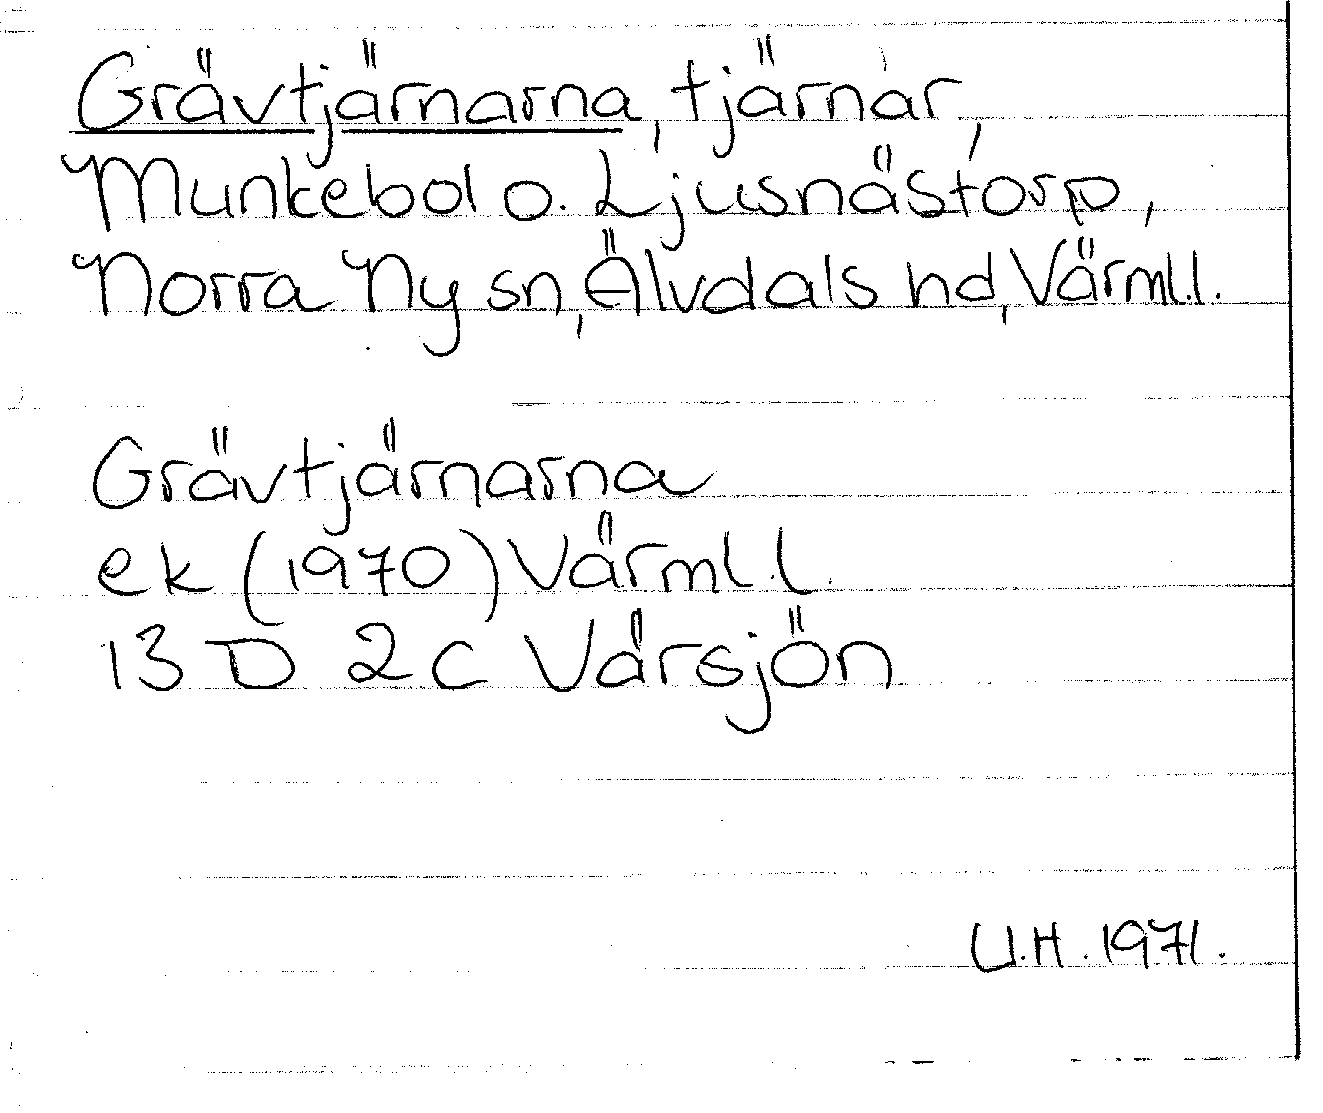 Grävtjärnarna, tjärnar,
Munkebol o. Ljusnästorp,
Norra Ny sn, Älvdals hd, Värml.l.
Grävtjärnarna
ek (1970) Värml.l.
13 D 2c Vårsjön
U.H. 1971.